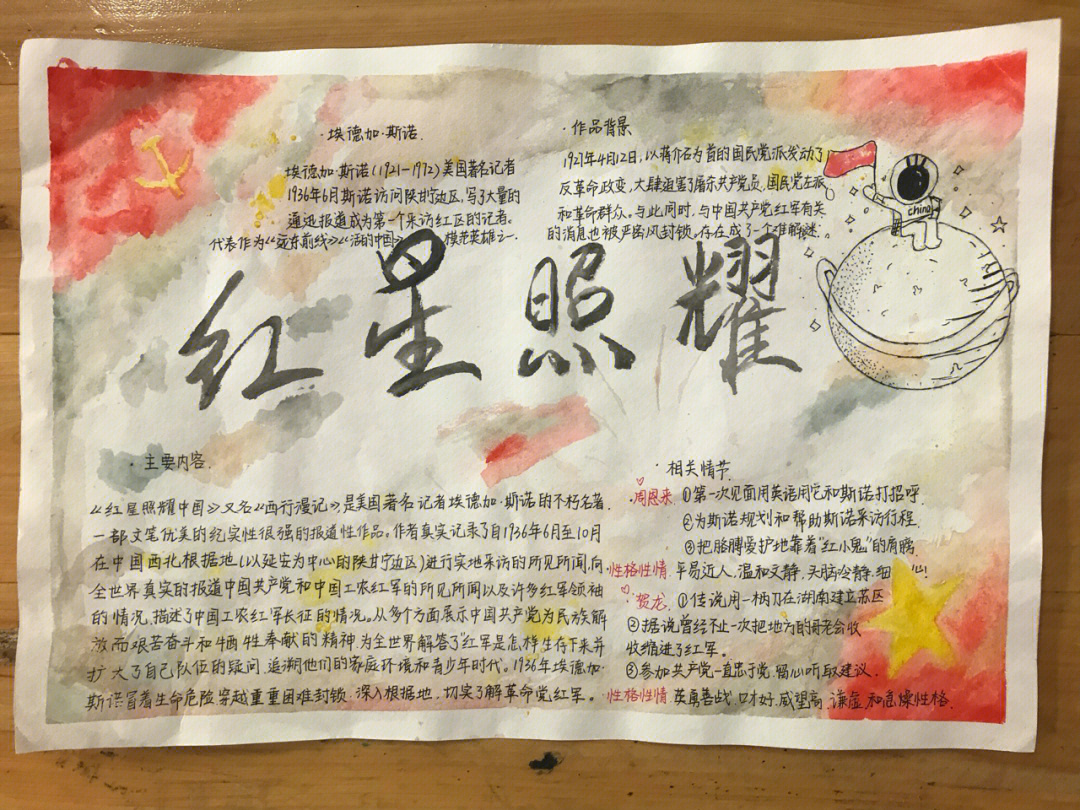 ·埃德加·斯诺.
埃德加·斯诺(1921-1972)美国著名记者
1936年6月斯诺访问陕甘宁边区,写了大量的
通迅报道成为第一个采访红区的记者。
代表作为《远东前线》《活的中国》 模范英雄之一.
·作品背景
1927年4月12日,以蒋介石为首的国民党派发动了
反革命政变,大肆迫害了屠杀共产党员,国民党左派
和革命群众。与此同时,与中国共产党红军有关
的消息也被严密风封锁。存在成了一个难解谜.
china
红星照耀
·主要内容.
《红星照耀中国》又名《西行漫记》,是美国著名记者埃德加·斯诺的不朽名著,
一部文笔优美的纪实性很强的报道性作品。作者真实记录了自1936年6月至10月
在中国西北根据地(以延安为中心的陕甘宁边区)进行实地采访的所见所闻,向
全世界真实的报道中国共产党和中国工农红军的所见所闻以及许多红军领袖
的情况,描述了中国工农红军长征的情况。从多个方面展示中国共产党为民族解
放而艰苦奋斗和牺牲奉献的精神,为全世界解答了红军是怎样生存下来并
扩大了自己队伍的疑问,追溯他们的家庭环境和青少年时代。1936年埃德加·
斯诺冒着生命危险穿越重重困难封锁,深入根据地,切实了解革命党红军。
·相关情节.
·周恩来 ①第一次见面用英语用它和斯诺打招呼.
②为斯诺规划和帮助斯诺采访行程.
③把胳膊爱护地靠着“红小鬼”的肩膀.
·性格性情.平易近人,温和文静,头脑冷静,细 心!
贺龙 ①传说用一柄刀在湖南建立苏区
②据说曾经不止一次把地方的哥老会收
收缩进了红军。
③参加共产党一直忠于党,留心听取建议.
·性格性情 英勇善战,口才好,威望高,谦虚,和急燥性格.